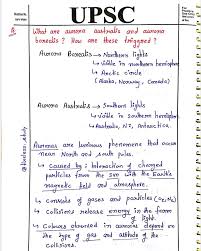 UPSC
Q. What are aurora australis and aurora
borealis? How are these triggered?
Aurora Borealis → Northern lights
↳ Visible in northern hemisphere
↳ Arctic circle
(Alaska, Norway, Canada)
Aurora Australis → Southern lights
↳ Visible in southern hemisphere
↳ Australia, NZ, Antarctica.
Auroras are luminous phenomena that occur
near North and south poles.
↳ Caused by: Interaction of charged
particles from the sun with the Earth's
magnetic field and atmosphere.
↳ Consists of gases and particles (O₂, N₂)
↳ Collisions release energy in the form
of light.
↳ Colours observed in auroras depend on
the type of gas and altitude of the
collisions.